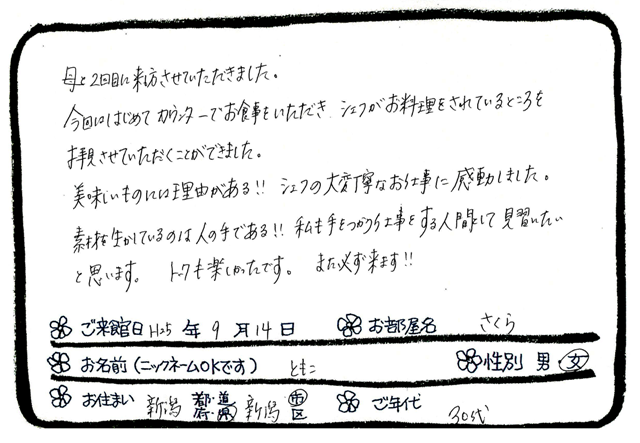 母と2回目に来訪させていただきました。
今回はじめてカウンターでお食事をいただき シェフがお料理をされているところを
拝見させていただくことができました。
美味しいものには理由がある!! シェフの大変丁寧なお仕事に感動しました。
素材を生かしているのは人の手である!! 私も手をつかう仕事をする人間として見習いたい
と思います。 トークも楽しかったです。 また必ず来ます!!
ご来館日 H25 年 9 月 14 日 お部屋名 さくら
お名前(ニックネームOKです) ともこ 性別 男 女
お住まい 新潟 都・道 府・県 新潟 市 区 ご年代 30代